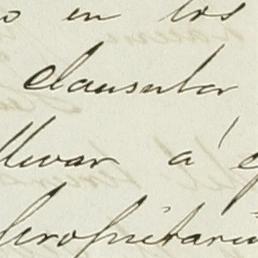 o en los
clausular
llevar á
propietario